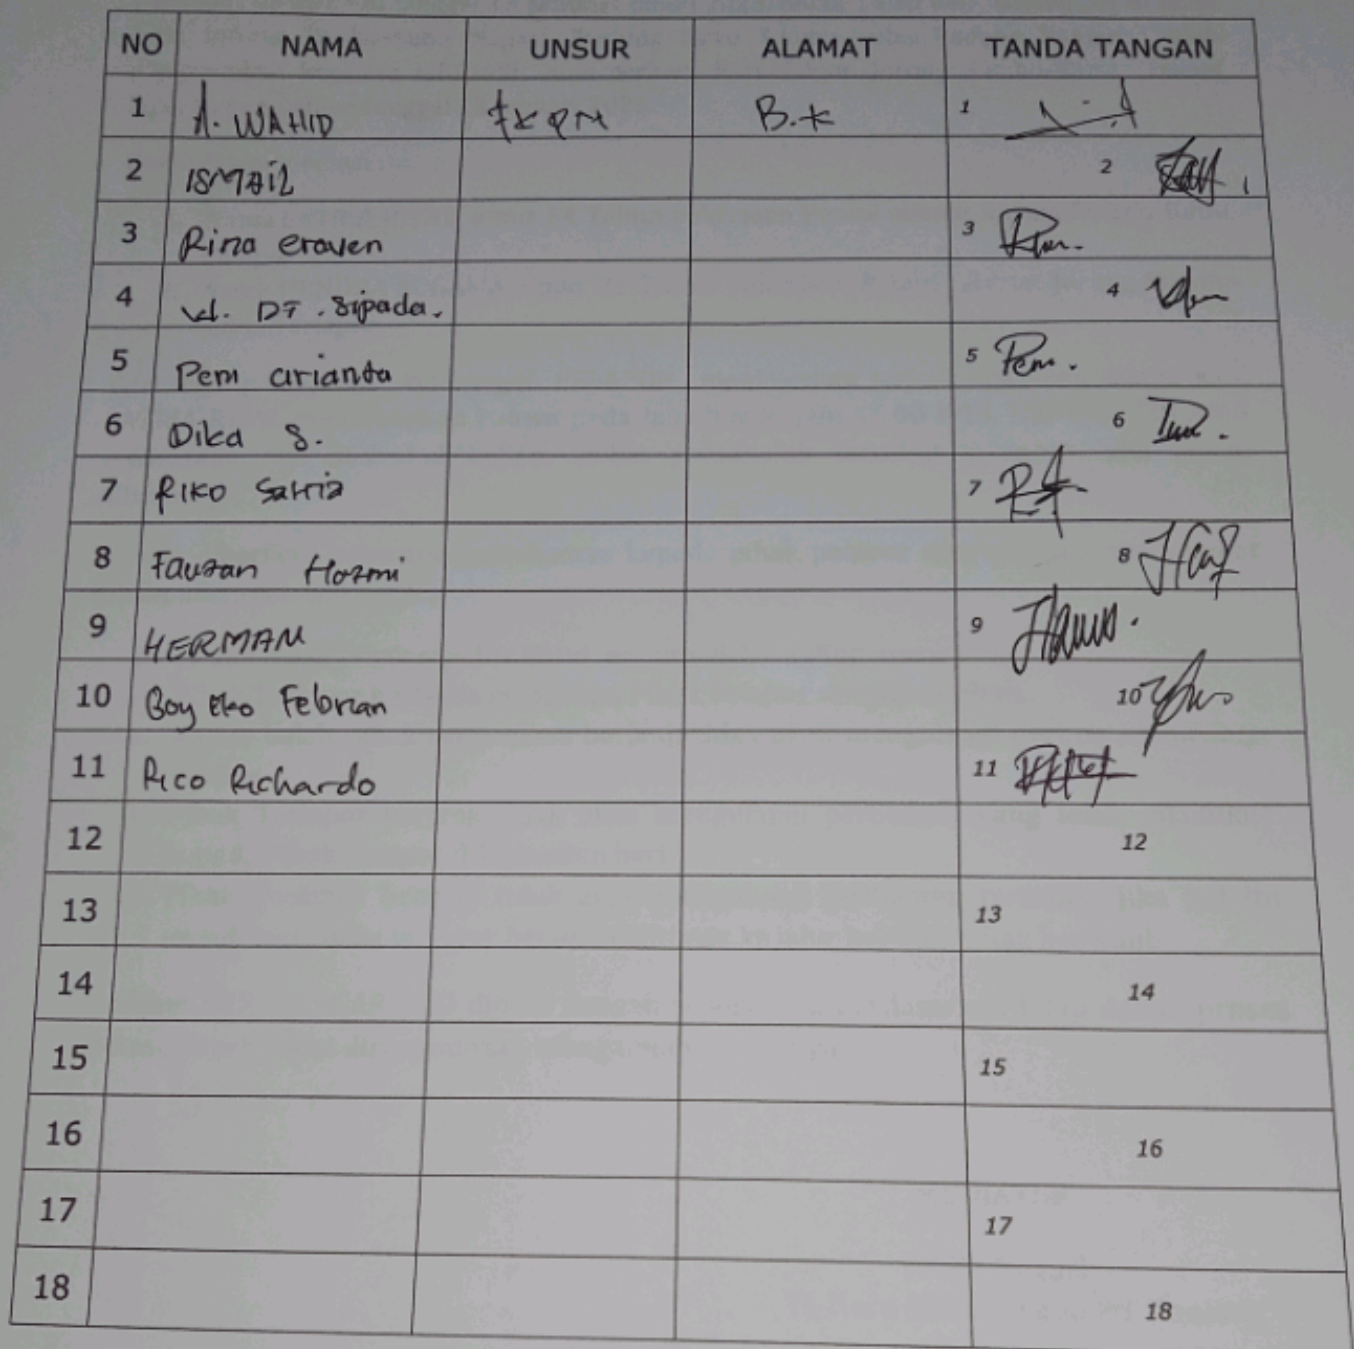 NO NAMA UNSUR ALAMAT TANDA TANGAN
1 A. WAHID FKPM B.K 1
2 ISMAIL 2
3 Rina eraven 3
4 DT. Sipada. 4
5 Pem arianta 5 Pem.
6 Dika S. 6
7 RIKO Satria 7
8 Fauzan Hazmi 8
9 HERMAN 9
10 Boy Eko Febrian 10
11 Rico Richardo 11
12 12
13 13
14 14
15 15
16 16
17 17
18 18